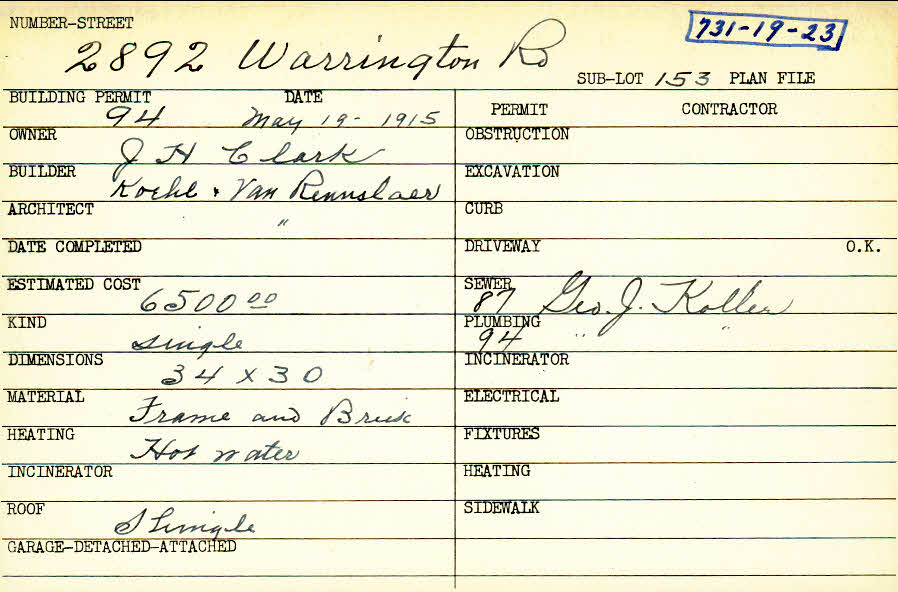 NUMBER-STREET
731-19-23
2892 Warrington Rd
SUB-LOT 153 PLAN FILE
BUILDING PERMIT DATE
94 May 19- 1915
OWNER
J H Clark
BUILDER
Koehl & Van Rennslaer
ARCHITECT
"
DATE COMPLETED
ESTIMATED COST
6500 00
KIND
single
DIMENSIONS
34 x 30
MATERIAL
Frame and Brick
HEATING
Hot water
INCINERATOR
ROOF
Shingle
GARAGE-DETACHED-ATTACHED
PERMIT CONTRACTOR
OBSTRUCTION
EXCAVATION
CURB
DRIVEWAY O.K.
SEWER
87 Geo. J. Koller
PLUMBING
94 " "
INCINERATOR
ELECTRICAL
FIXTURES
HEATING
SIDEWALK